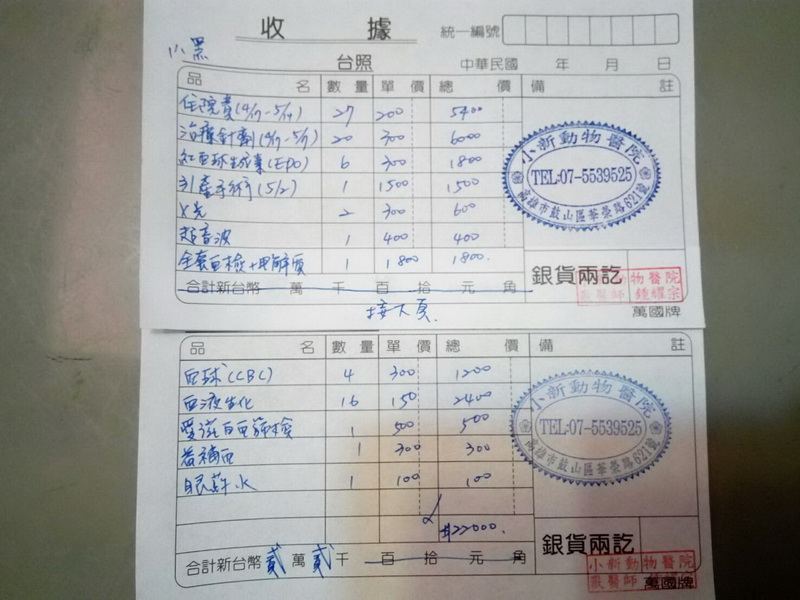 收 據
統一編號
小黑
台照
中華民國 年 月 日
品 名 數量 單價 總價 備註
住院費(4/17-5/14) 27 200 5400
治療針劑(4/17-5/7) 20 300 6000
紅血球生成素(EPO) 6 300 1800
引產手術(5/2) 1 1500 1500
X光 2 300 600
超音波 1 400 400
全套血檢+電解質 1 1800 1800.
小新動物醫院
TEL:07-5539525
高雄市鼓山區華榮路621號
合計新台幣 萬 千 百 拾 元 角
銀貨兩訖
物醫院
獸醫師 鍾耀宗
萬國牌
接下頁.
品 名 數量 單價 總價 備註
血球(CBC) 4 300 1200
血液生化 16 150 2400
愛滋白血篩檢 1 500 500
補血 1 300 300
眼藥水 1 100 100
小新動物醫院
TEL:07-5539525
高雄市鼓山區華榮路621號
22000.
合計新台幣 貳 萬 貳 千 百 拾 元 角
銀貨兩訖
小新動物醫院
獸醫師
萬國牌